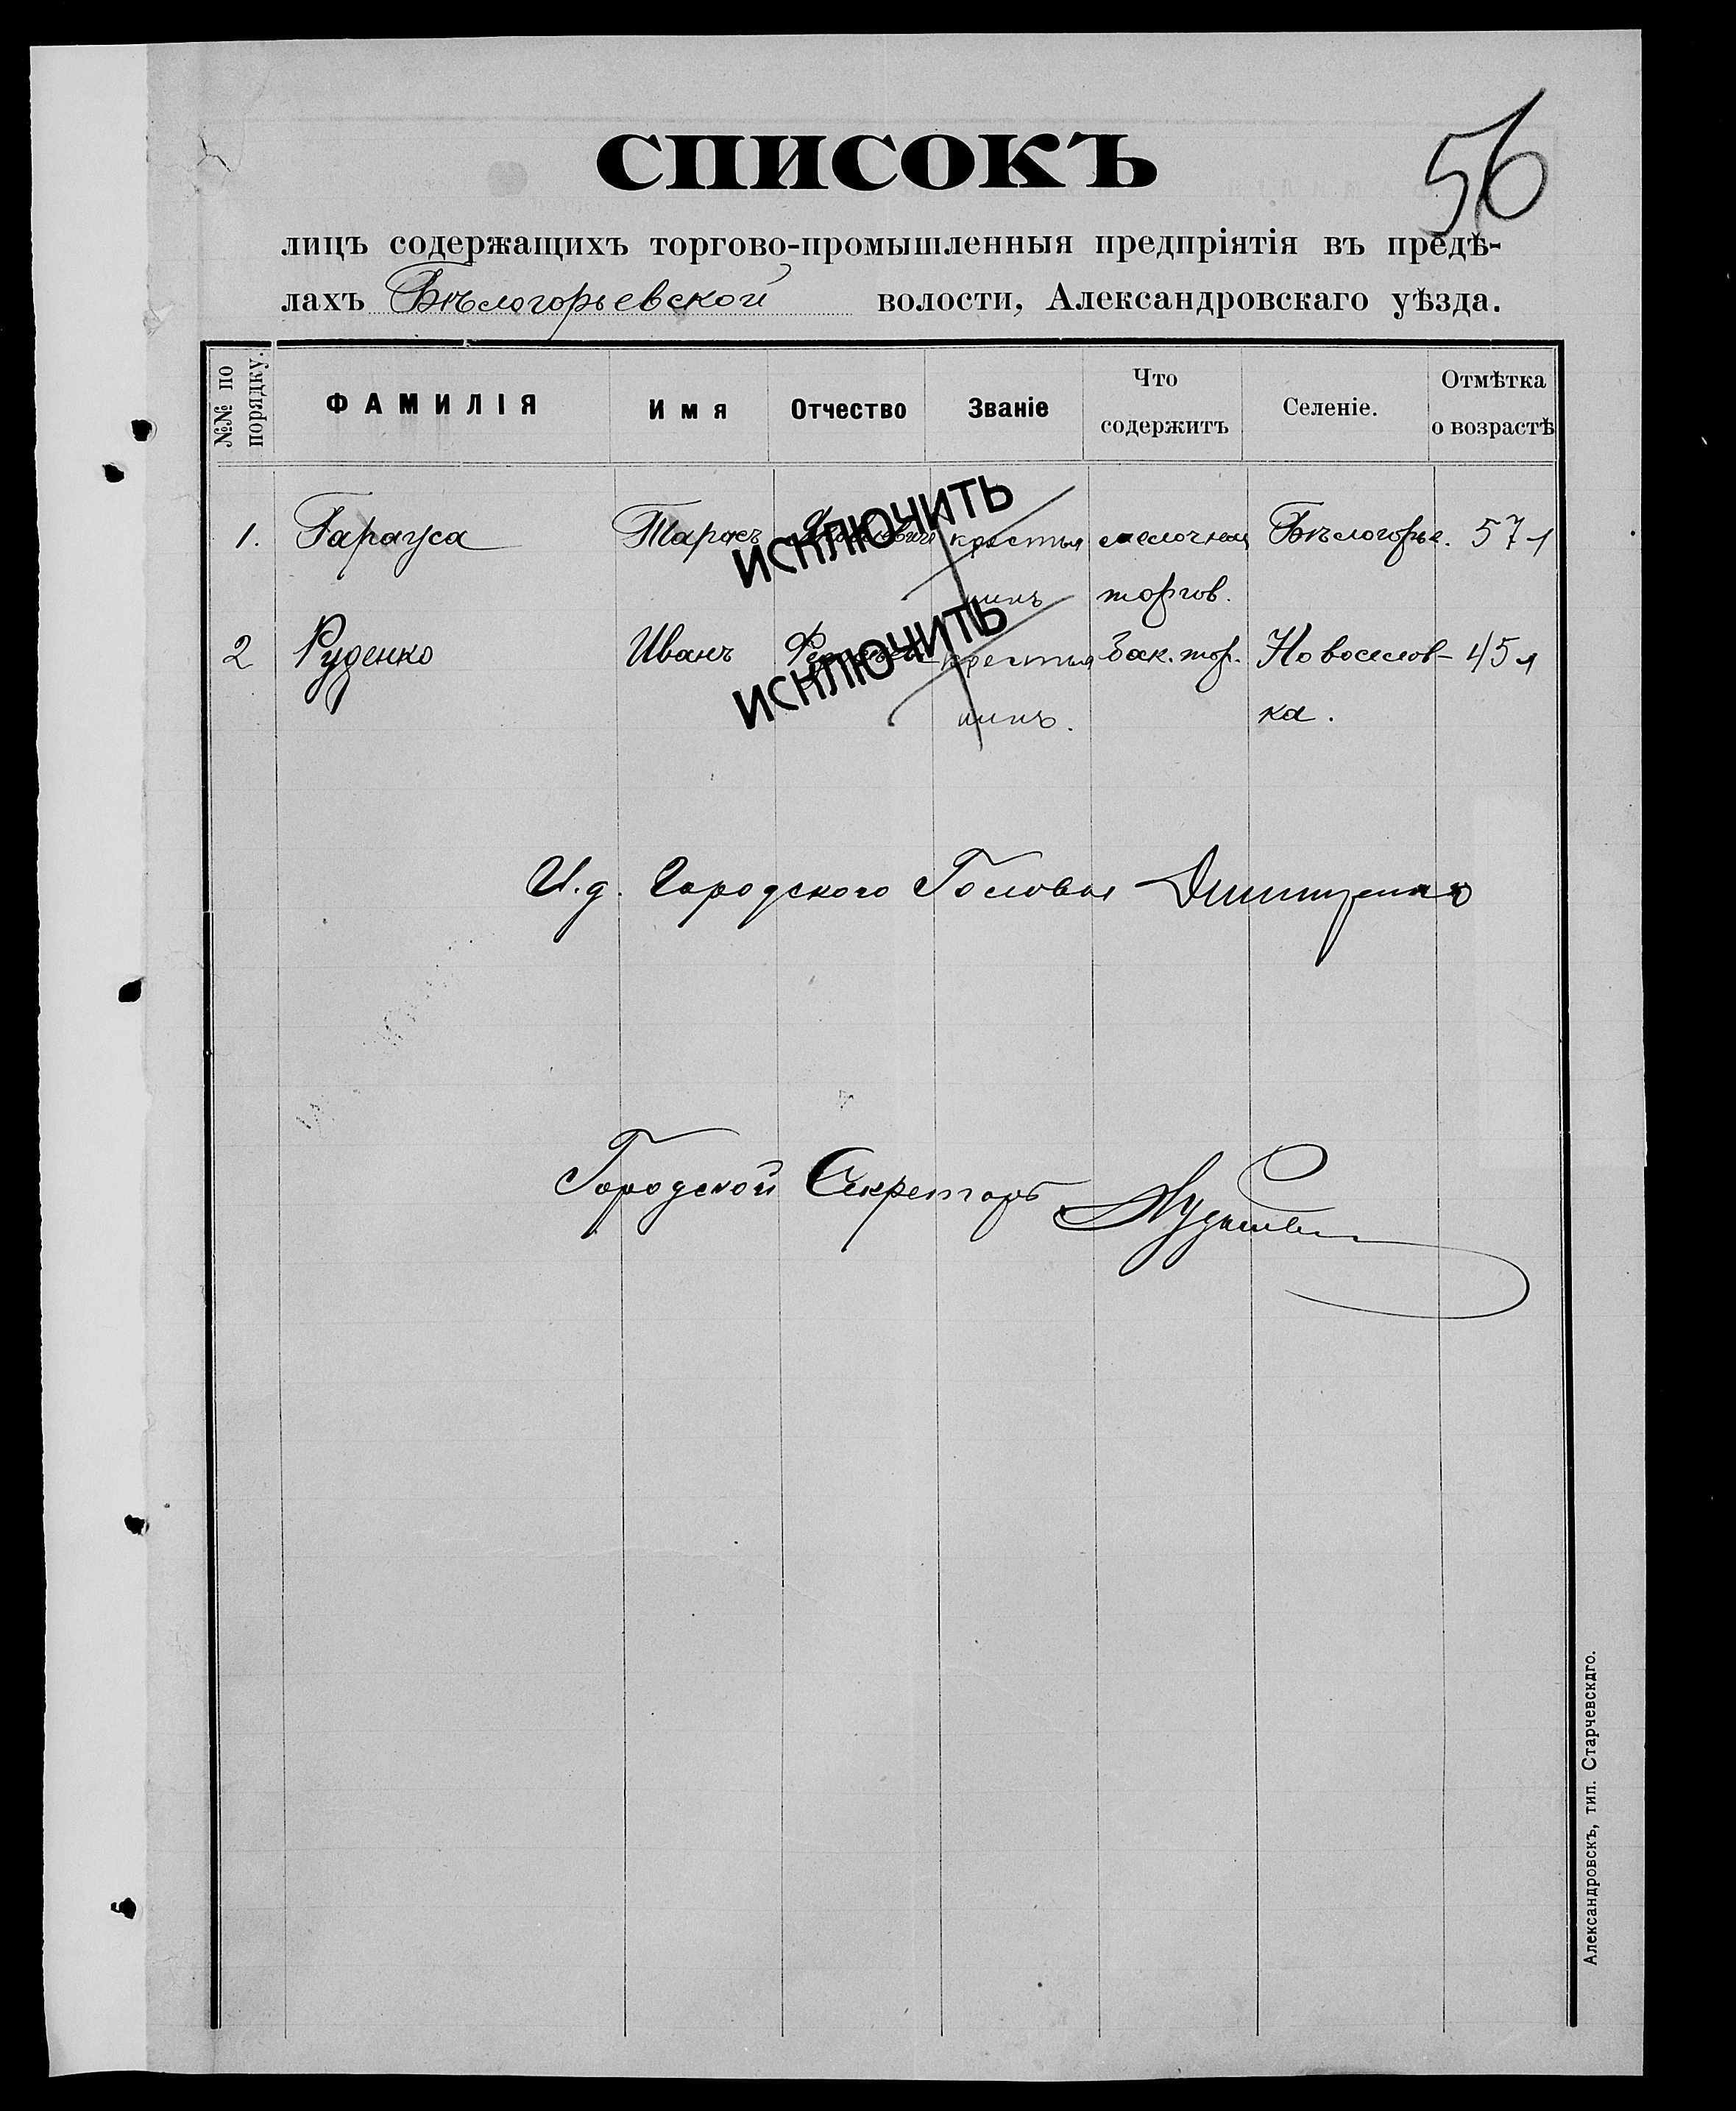 56
СПИСОКЪ
лицъ содержащихъ торгово-промышленныя предпріятія въ предѣ-
лахъ Бѣлогорьевской волости, Александровскаго уѣзда.
№№ по порядку. ФАМИЛІЯ Имя Отчество Званіе Что содержитъ Селеніе. Отмѣтка о возрастѣ
1. Гарауса Тарасъ крестья мелочная Бѣлогорье. 57 л
ИСКЛЮЧИТЬ
нинъ торгов.
2 Руденко Иванъ крестья бак. тор. Новоселов- 45 л
ИСКЛЮЧИТЬ
нинъ. ка.
И. д. Городского Головы
Городской Секретарь
Александровскъ, тип. Старчевскдго.